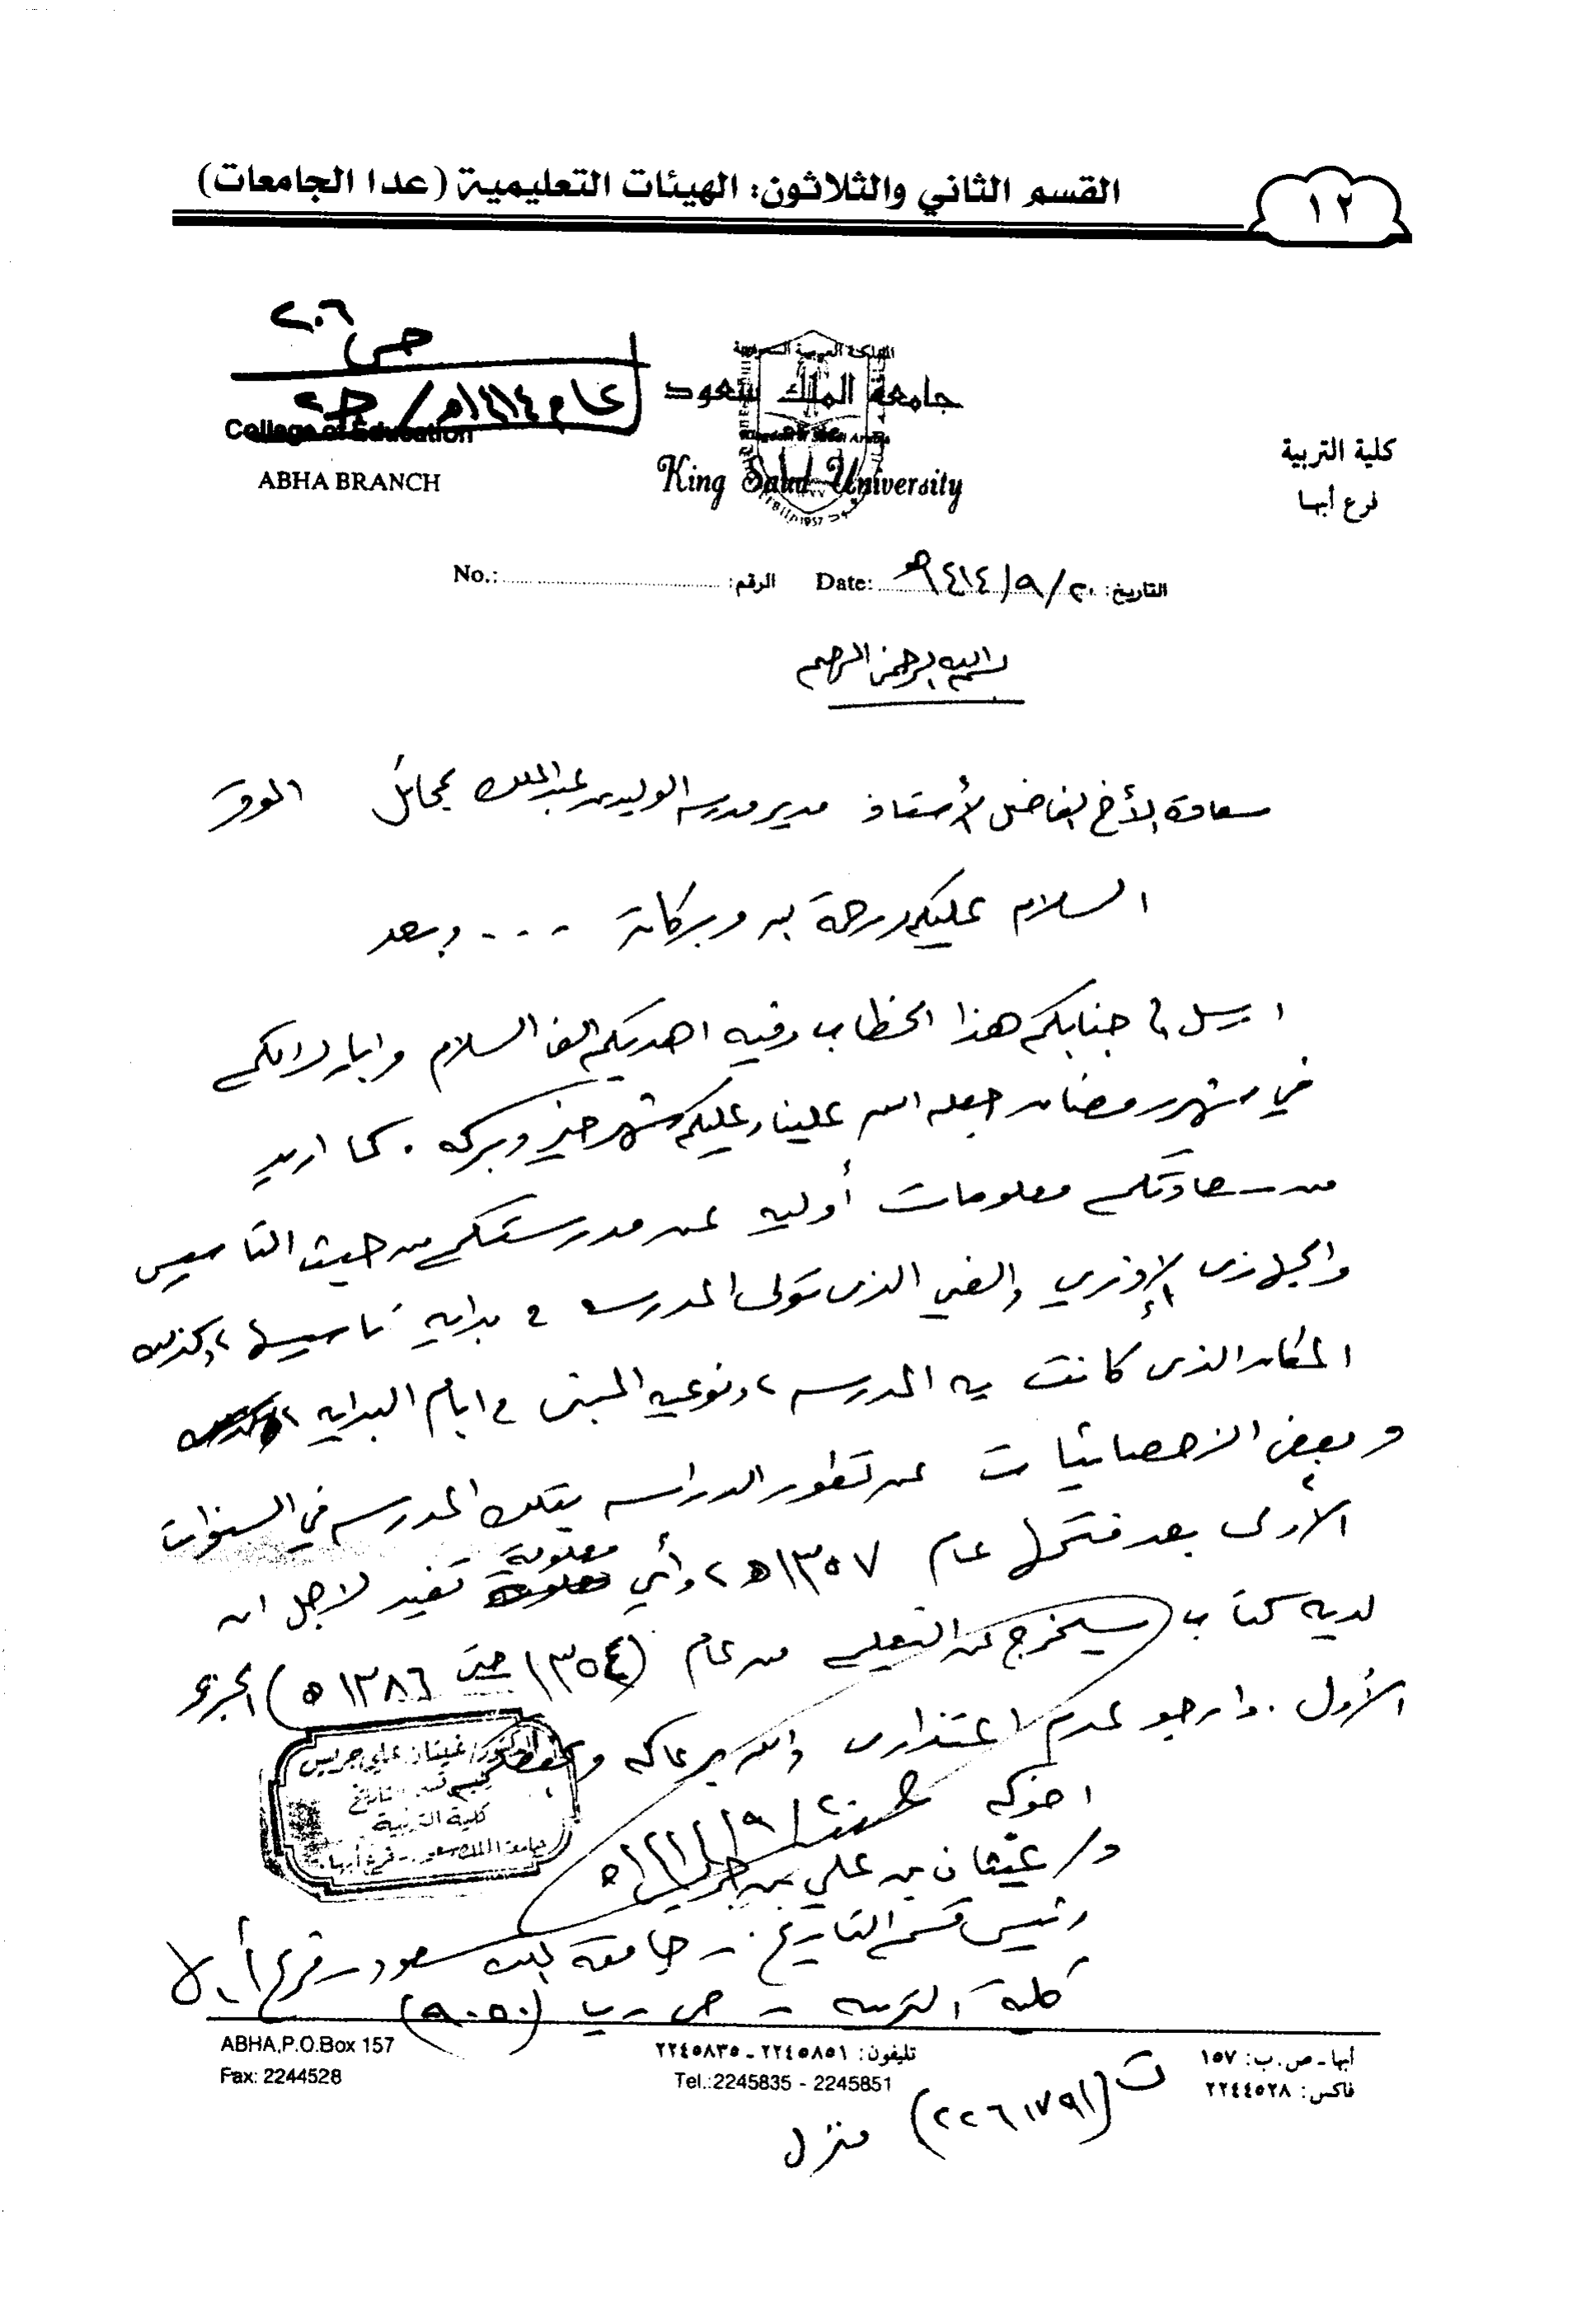 ١٢
القسم الثاني والثلاثون: الهيئات التعليمية (عدا الجامعات)
ص ٢٠٦
عام ١٤١٤هـ / ج٢
المملكة العربية السعودية
جامعة الملك سعود
King Saud University
1957
College of Education
ABHA BRANCH
كلية التربية
فرع أبها
التاريخ: ٢٠/٩/١٤١٤هـ Date: الرقم: No.:
بسم الله الرحمن الرحيم
سعادة الأخ الفاضل الأستاذ مدير مدرسة الوليد بن عبد الملك بمحائل الموقر
السلام عليكم ورحمة الله وبركاته ... وبعد
ارسل جنابكم هذا الخطاب وفيه اهديكم الف السلام
في شهر رمضان جعله الله علينا وعليكم شهر خير وبركه . كما اريد
من سعادتكم معلومات أوليه عن مدرستكم من حيث التاسيس
والجهازى الإدري والفني الذى تولى المدرسه في بدايه تاسيسها ، وكذلك
المكان الذى كانت به المدرسه ، ونوعيه المبنى في ايام البدايه
وبعض الإحصائيات عن تطور الدراسه بتلك المدرسه في السنوات
الأولى بعد فتحها عام ١٣٥٧هـ ، وأي معلومة تفيد لاجل ان
لديه كتاب سيخرج عن التعليم من عام (١٣٥٤ حتى ١٣٨٦هـ) الجزء
الأول . وارجو عدم اعتذارى والله يرعاكم ويحفظكم
الدكتور/ غيثان علي جريس
رئيس قسم التاريخ
كلية التربية
جامعة الملك سعود - فرع أبها
اخوكم
د/ غيثان بن علي بن جريس
رئيس قسم التاريخ - جامعة الملك سعود - فرع أبها
كلية التربيه - ص - ب (٩٠٥٠)
ABHA,P.O.Box 157
Fax: 2244528
تليفون: ٢٢٤٥٨٥١ - ٢٢٤٥٨٣٥
Tel.:2245835 - 2245851
أبها - ص.ب: ١٥٧
فاكس: ٢٢٤٤٥٢٨
ت (٢٢٦١٧٩١) منزل